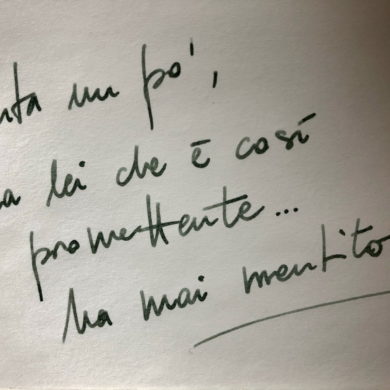 nta un po',
a lei che è così
promettente...
ha mai mentito